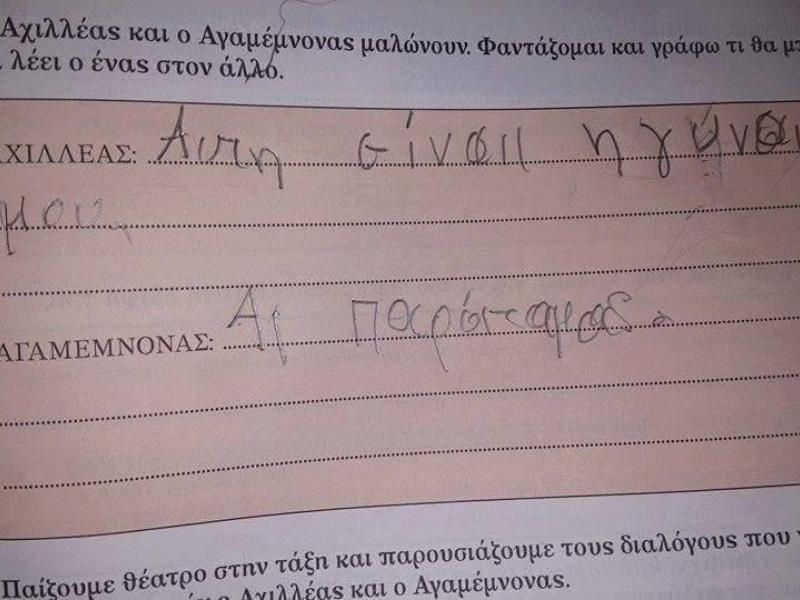 Αχιλλέας και ο Αγαμέμνονας μαλώνουν. Φαντάζομαι και γράφω τι θα μπ
λέει ο ένας στον άλλο.
ΧΙΛΛΕΑΣ: Αυτη είναι η γύνεκα
μου.
ΑΓΑΜΕΜΝΟΝΑΣ: Αι παράταμας.
Παίζουμε θέατρο στην τάξη και παρουσιάζουμε τους διαλόγους που
ο Αχιλλέας και ο Αγαμέμνονας.